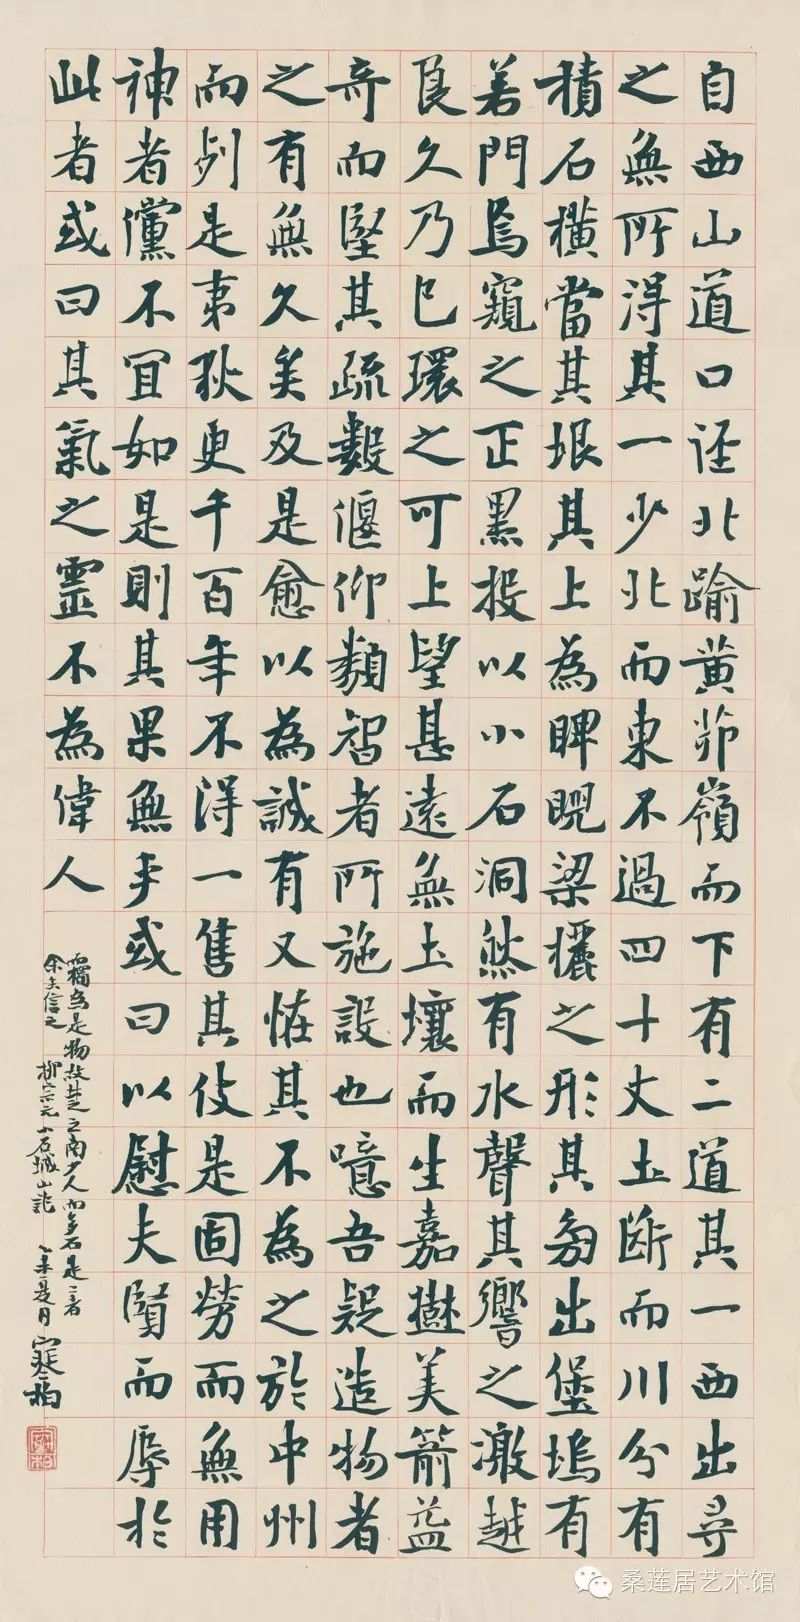 自西山道口徑北踰黃茆嶺而下有二道其一西出尋
之無所得其一少北而東不過四十丈土斷而川分有
積石橫當其垠其上為睥睨梁欐之形其旁出堡塢有
若門焉窺之正黑投以小石洞然有水聲其響之激越
良久乃已環之可上望甚遠無土壤而生嘉樹美箭益
奇而堅其疏數偃仰類智者所施設也噫吾疑造物者
之有無久矣及是愈以為誠有又怪其不為之於中州
而列是夷狄更千百年不得一售其伎是固勞而無用
神者儻不宜如是則其果無乎或曰以慰夫賢而辱於
此者或曰其氣之靈不為偉人
而獨為是物故楚之南少人而多石是二者
余未信之 柳宗元小石城山記 乙未夏月 寒柏
桑莲居艺术馆